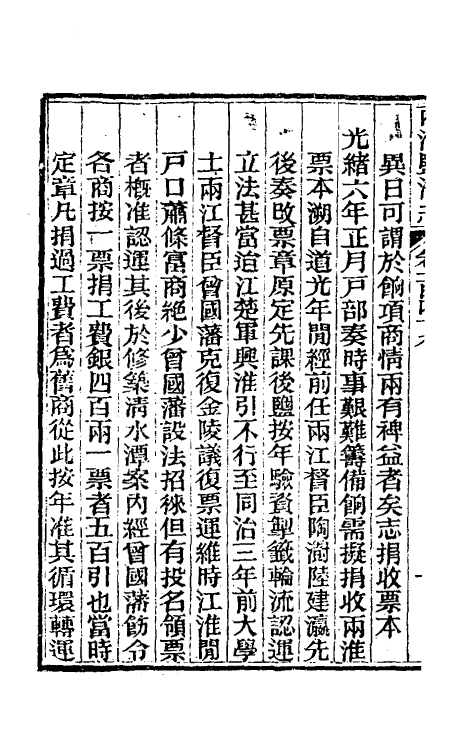 異日可謂於餉項商情兩有裨益者矣志捐收票本
光緒六年正月戸部奏時事艱難籌備餉需擬捐收兩淮
票本溯自道光年閒經前任兩江督臣陶澍陸建瀛先
後奏改票章原定先課後鹽按年驗貲掣籤輪流認運
立法甚當迨江楚軍興淮引不行至同治三年前大學
士兩江督臣曾國藩克復金陵議復票運維時江淮閒
戸口蕭條富商絶少曾國藩設法招徠但有投名領票
者槪准認運其後於修築淸水潭案內經曾國藩飭令
各商按一票捐工費銀四百兩一票者五百引也當時
定章凡捐過工費者爲舊商從此按年准其循環轉運